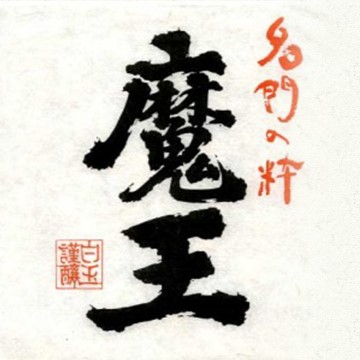 名門の粋
魔王
白玉
謹醸